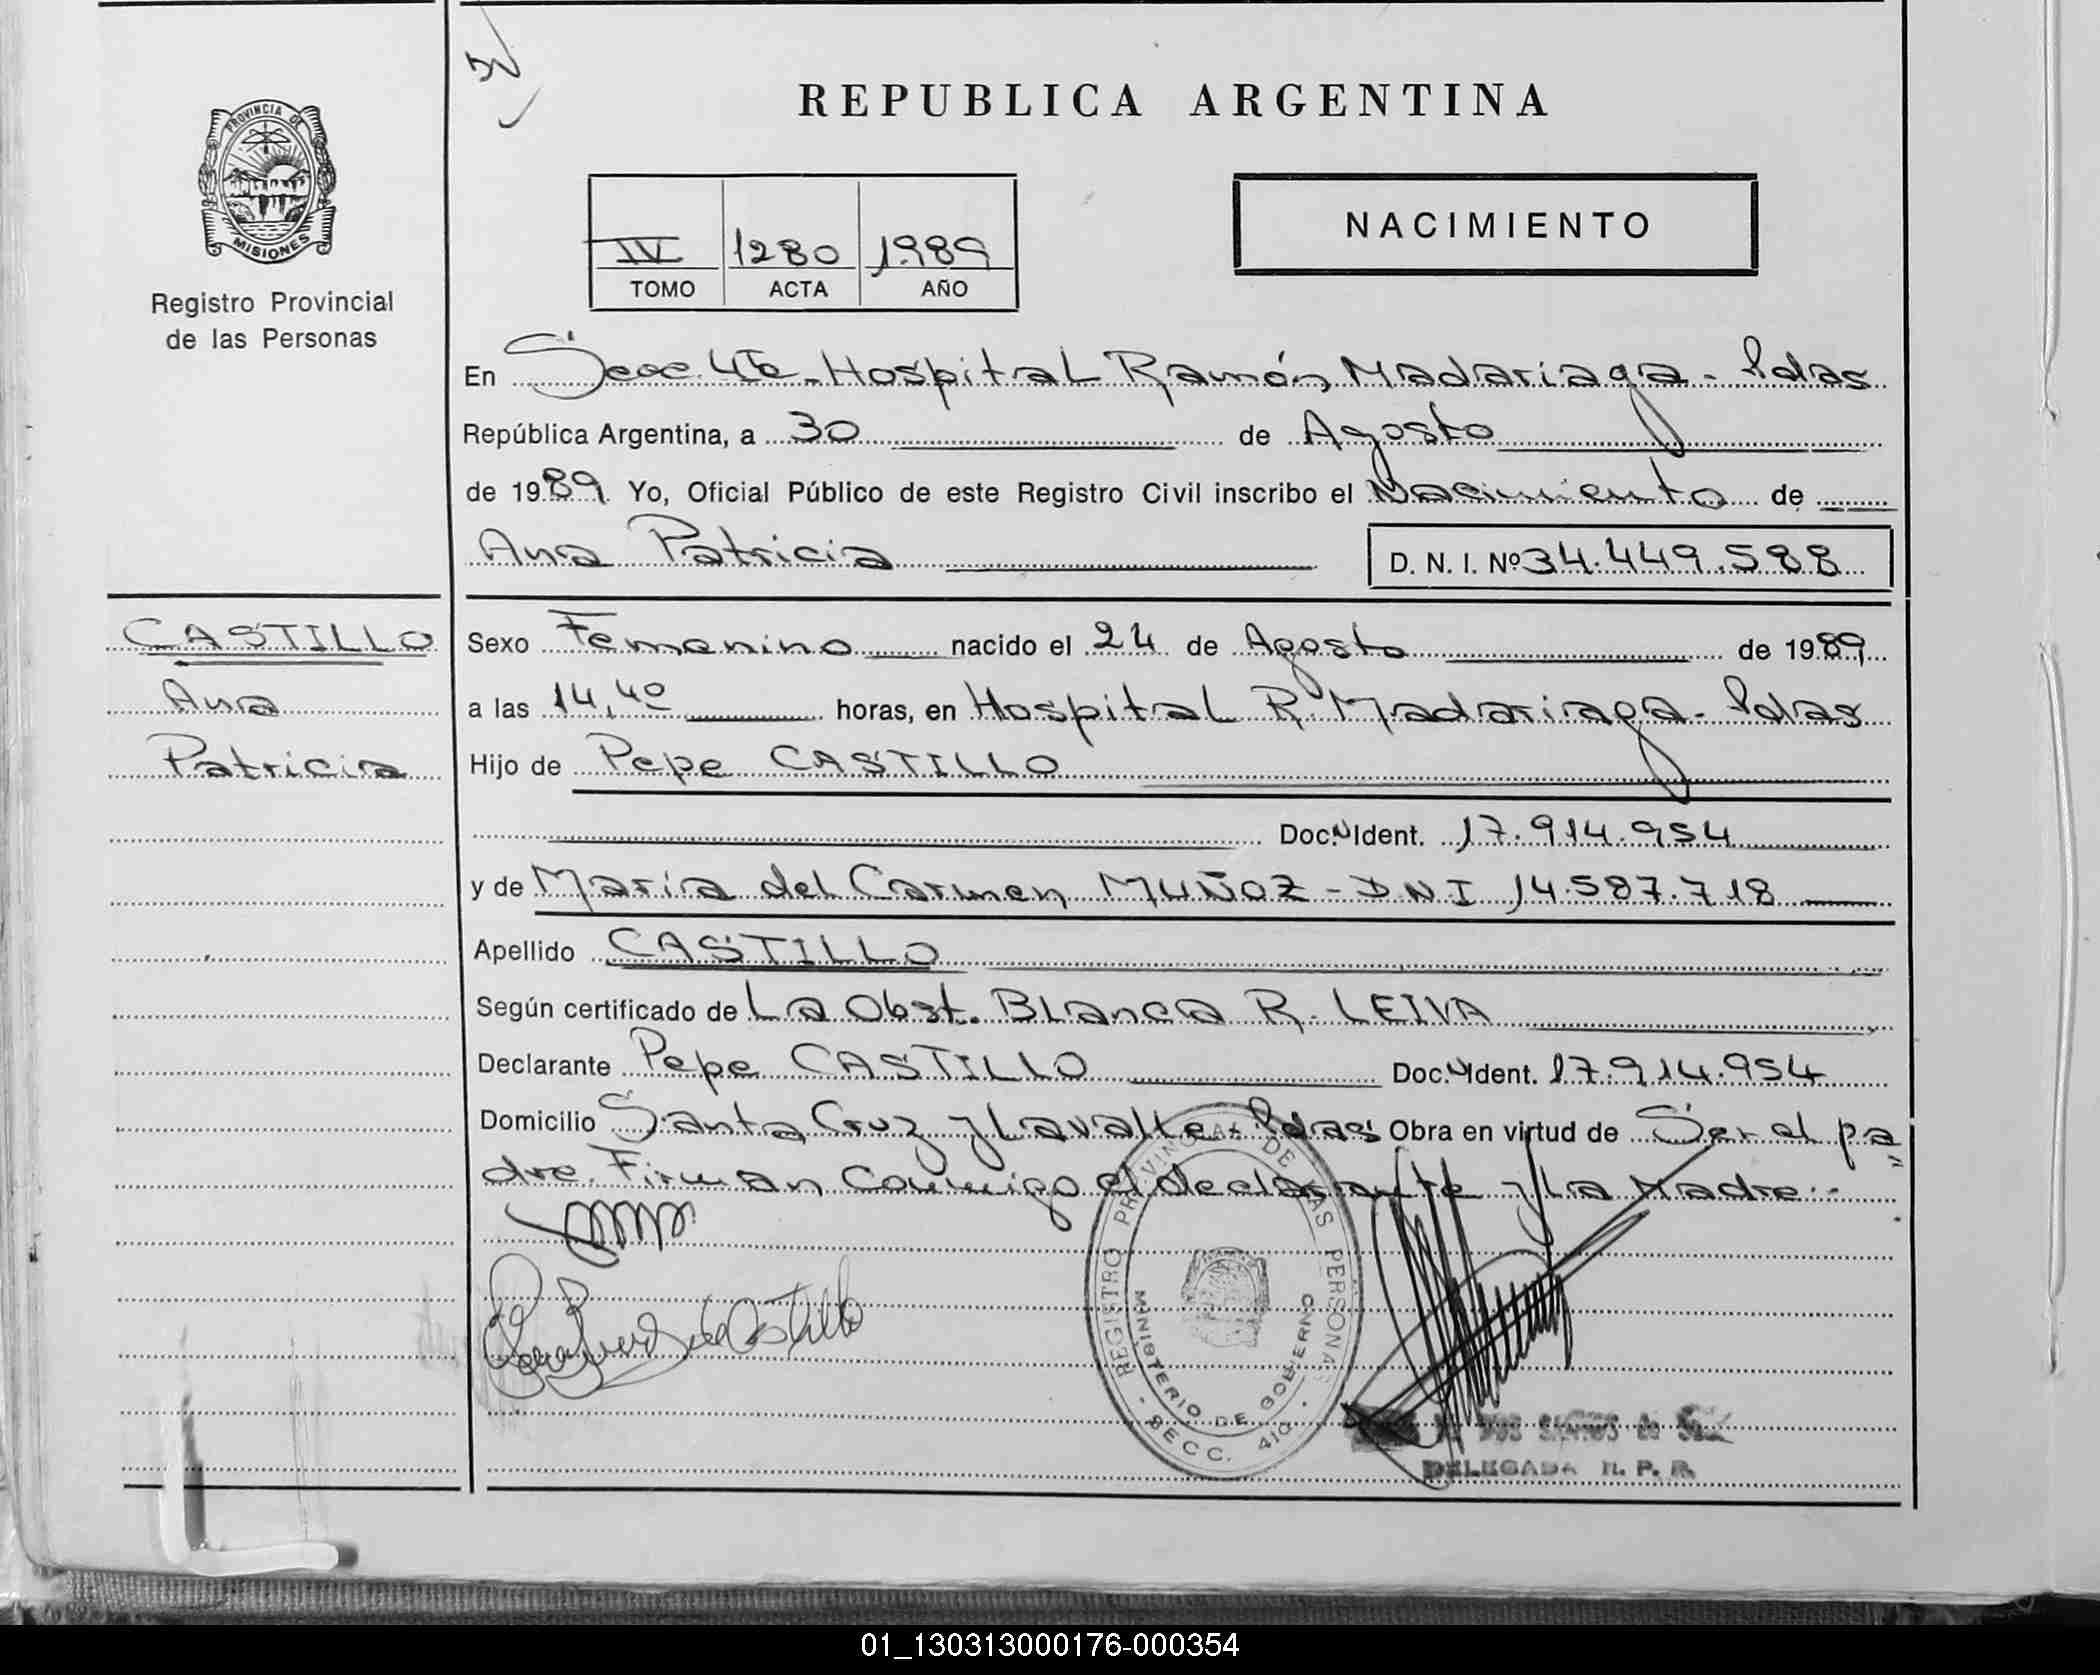 PROVINCIA DE
MISIONES
Registro Provincial
de las Personas
REPUBLICA ARGENTINA
IV 1280 1989
TOMO ACTA AÑO
NACIMIENTO
En Secc. 4ta - Hospital Ramón Madariaga - Pdas
República Argentina, a 30 de Agosto
de 1989 Yo, Oficial Público de este Registro Civil inscribo el Nacimiento de
Ana Patricia D. N. I. Nº 34.449.588
CASTILLO
Ana
Patricia
Sexo Femenino nacido el 24 de Agosto de 1989
a las 14,40 horas, en Hospital R. Madariaga - Pdas
Hijo de Pepe CASTILLO
Doc. Ident. 17.914.954
y de María del Carmen MUÑOZ - DNI 14.587.718
Apellido CASTILLO
Según certificado de La Obst. Blanca R. LEIVA
Declarante Pepe CASTILLO Doc. Ident. 17.914.954
Domicilio Santa Cruz y Lavalle - Pdas Obra en virtud de Ser el pa
dre. Firman conmigo el declarante y La Madre.-
de Castillo
REGISTRO PROVINCIAL DE LAS PERSONAS
MINISTERIO DE GOBIERNO
- SECC. 4ta -
DELEGADA R. P. P.
01_130313000176-000354